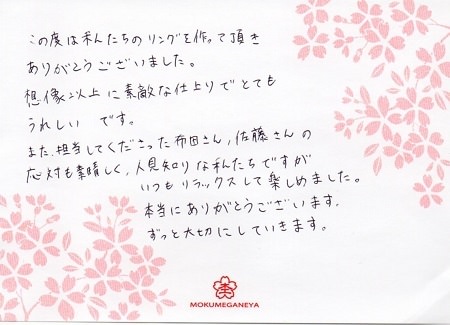 この度は私たちのリングを作って頂き
ありがとうございました。
想像以上に素敵な仕上りでとても
うれしい です。
また、担当してくださった布田さん,佐藤さんの
応対も素晴しく、人見知りな私たちですが
いつもリラックスして楽しめました。
本当にありがとうございます。
ずっと大切にしていきます。
MOKUMEGANEYA